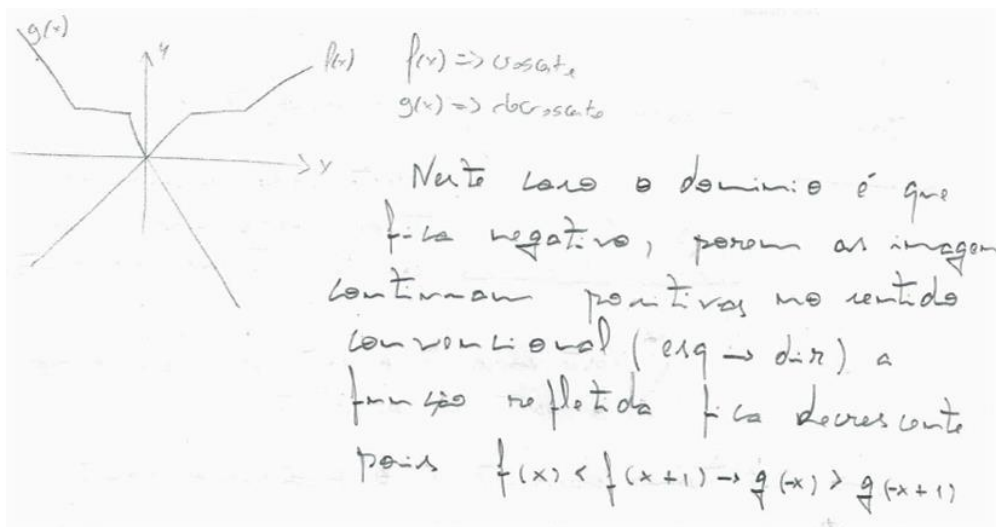 g(x)
y
f(x)
x
f(x) => crescente
g(x) => decrescente
Neste caso o dominio é que
fica negativo, porem as imagem
continuam positivas no sentido
convencional (esq → dir) a
função refletida fica decrescente
pois f(x) < f(x+1) → g(-x) > g(-x+1)